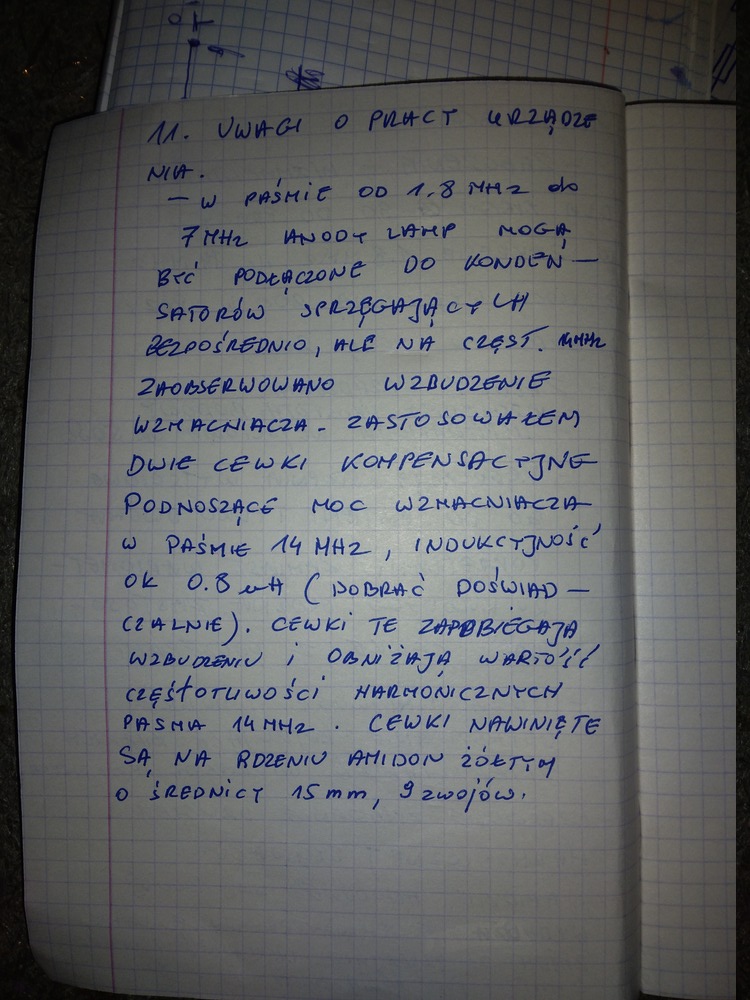 11. UWAGI O PRACY URZĄDZE
NIA.
— W PAŚMIE OD 1.8 MHz do
7 MHz ANODY LAMP MOGĄ
BYĆ PODŁĄCZONE DO KONDEN —
SATORÓW SPRZĘGAJĄCYCH
BEZPOŚREDNIO, ALE NA CZĘST.
ZAOBSERWOWANO WZBUDZENIE
WZMACNIACZA. ZASTOSOWAŁEM
DWIE CEWKI KOMPENSACYJNE
PODNOSZĄCE MOC WZMACNIACZA
W PAŚMIE 14 MHz, INDUKCYJNOŚĆ
OK 0.8 uH (DOBRAĆ DOŚWIAD —
CZALNIE). CEWKI TE ZAPOBIEGAJĄ
WZBUDZENIU i OBNIŻAJĄ WARTOŚĆ
CZĘSTOTLIWOŚCI HARMONICZNYCH
PASMA 14 MHz. CEWKI NAWINIĘTE
SĄ NA RDZENIU AMIDON ŻÓŁTYM
O ŚREDNICY 15 mm, 9 zwojów.